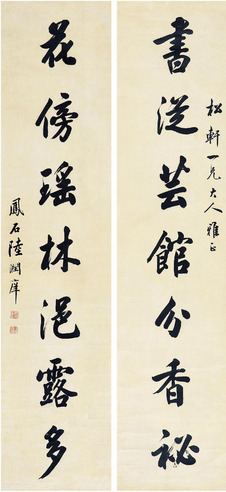 松軒一兄大人雅正
書從芸館分香祕
花傍瑤林浥露多
鳳石陸潤庠